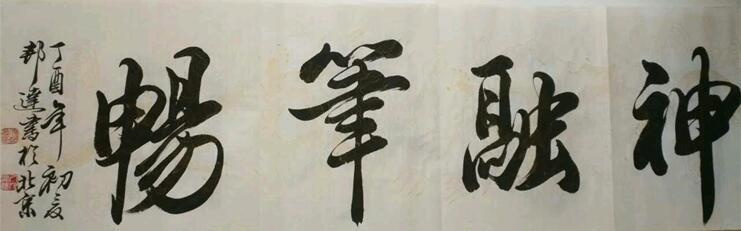 神融筆暢
丁酉年初夏
邦達書於北京